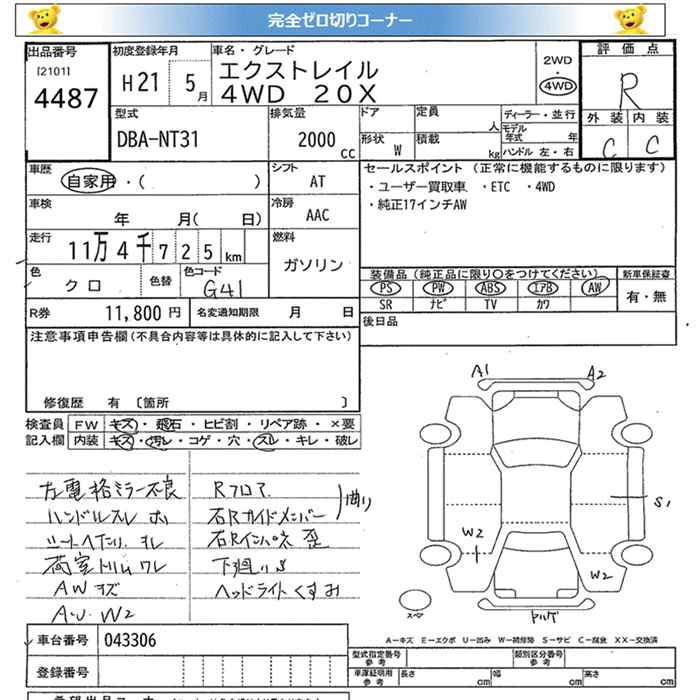 完全ゼロ切りコーナー
出品番号
[2101]
4487
初度登録年月
H21 5月
車名・グレード
エクストレイル
4WD 20X
2WD
4WD
評価点
R
外装 内装
C C
型式
DBA-NT31
排気量
2000 cc
ドア
形状 W
定員 人
積載 kg
ディーラー・並行
モデル年式 年
ハンドル 左・右
車歴
自家用・( )
シフト
AT
車検
年 月( 日)
冷房
AAC
走行
11万4千725km
燃料
ガソリン
色
クロ
色替
色コード
G41
R券 11,800円
名変通知期限 月 日
セールスポイント (正常に機能するものに限ります)
・ユーザー買取車 ・ETC ・4WD
・純正17インチAW
装備品(純正品に限り○をつけてください)
新車保証書
PS PW ABS エアB AW
SR ナビ TV カワ
有・無
後日品
注意事項申告欄(不具合内容等は具体的に記入して下さい)
修復歴 有 〔箇所 〕
検査員記入欄
FW キズ・飛石・ヒビ割・リペア跡・×要
内装 キズ・汚レ・コゲ・穴・スレ・キレ・破レ
左電格ミラー不良
ハンドルスレ
シートヘタリ
荷室トリムワレ
AWキズ
A・U W2
Rフロア
右Rサイドメンバー
曲り
右Rインパネ 歪
下廻りS
ヘッドライトくすみ
A1
A2
S1
W2
W2
スペア
ヤルゲ
A－キズ E－エクボ U－凹み W－補修跡 S－サビ C－腐食 XX－交換済
車台番号 043306
登録番号
型式指定番号 参考
類別区分番号 参考
車庫証明用 参考
長さ cm
幅 cm
高さ cm